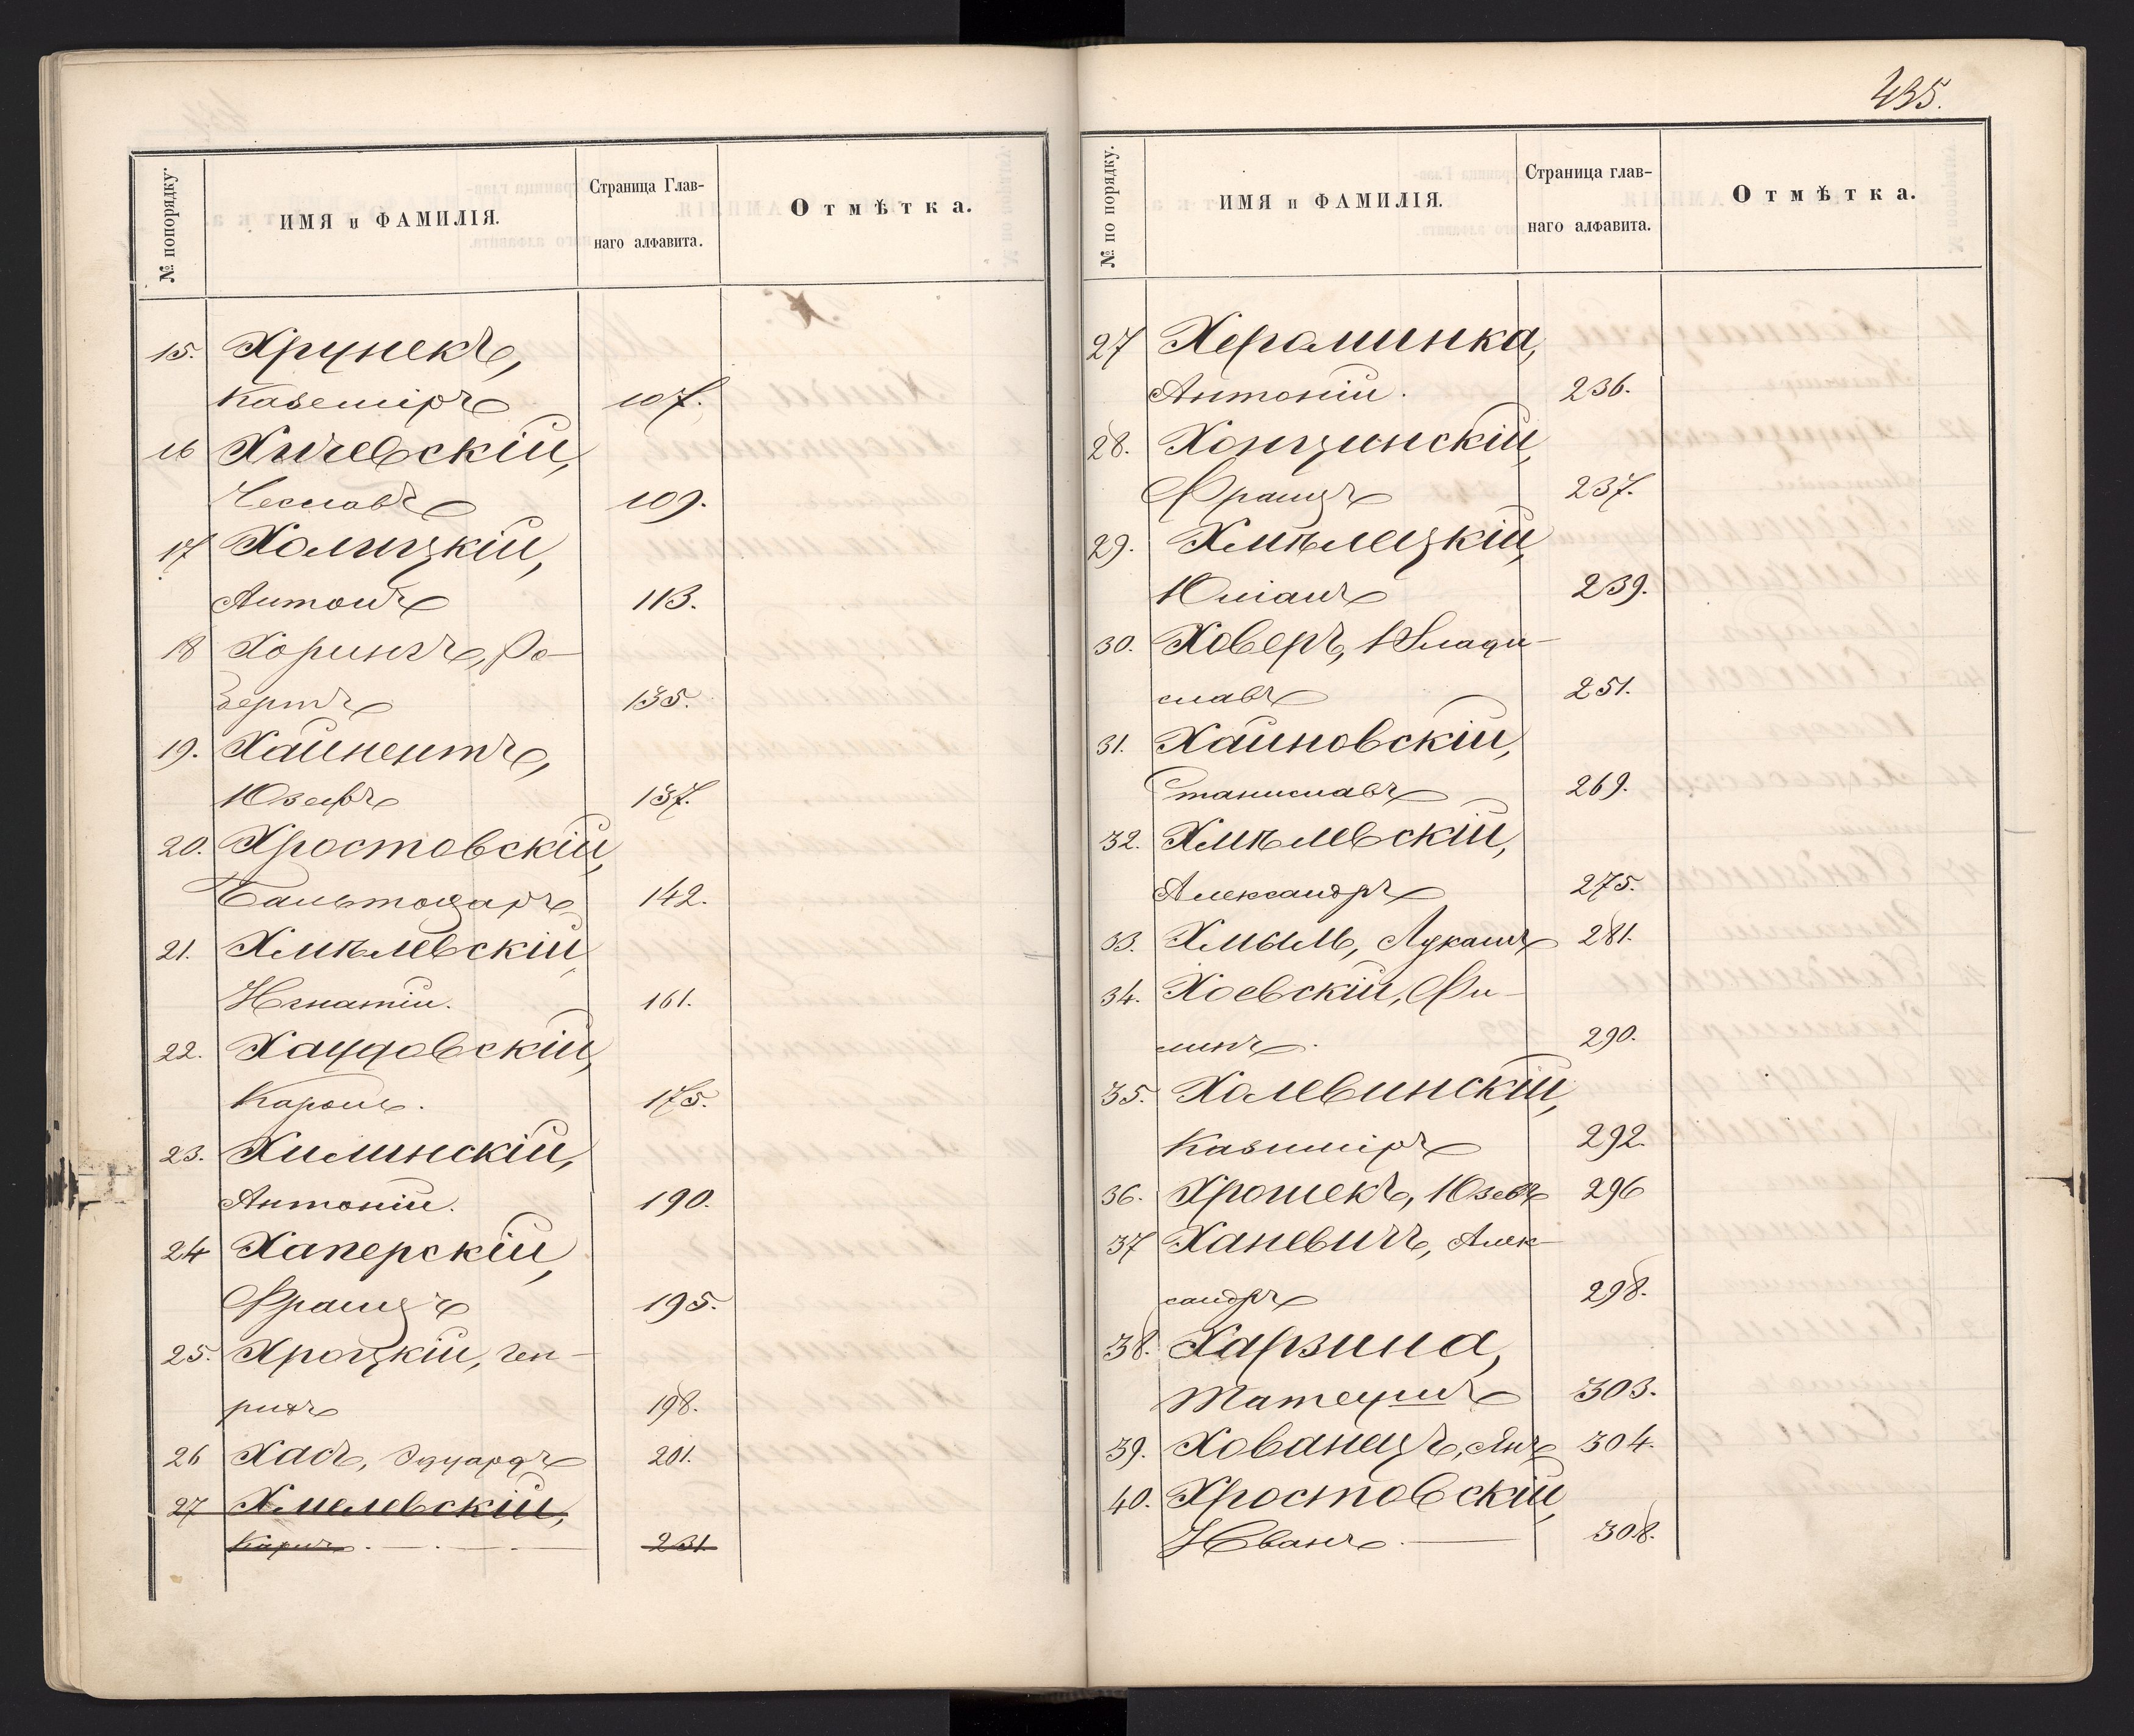 № попорядку.
ИМЯ и ФАМИЛІЯ.
Страница Глав-
наго алфавита.
Отмѣтка.
15. Хрунекъ,
Каземіръ 107.
16 Хичевскій,
Чеславъ 109.
17 Холицкій,
Антонъ 113.
18 Хорингъ, Ро-
бертъ 135.
19. Хайнентъ,
Юзефъ 137.
20. Хростовскій,
Бальтоцаръ 142.
21. Хмѣлевскій,
Игнатій. 161.
22. Хаудовскій,
Кароль. 175.
23. Хилинскій,
Антоній. 190.
24 Хаперскій,
Францъ 195.
25. Хроцкій, Ген-
рихъ 198.
26 Хасъ, Эдуардъ 201.
27 Хмелевскій,
Карлъ 231.
435.
№ по порядку.
ИМЯ и ФАМИЛІЯ.
Страница глав-
наго алфавита.
Отмѣтка.
27 Хераминка,
Антоній. 236.
28. Хонцинскій,
Францъ 237.
29. Хмѣлецкій,
Юліанъ 239.
30. Ховеръ, Влади-
славъ 251.
31. Хайновскій,
Станиславъ 269.
32. Хмѣлевскій,
Александръ 275.
33. Хмыль, Лукашъ 281.
34. Хоевскій, Фи-
липъ. 290.
35. Холевинскій,
Казиміръ 292.
36. Хрошекъ, Юзефъ 296
37 Ханевичъ, Алек-
сандръ 298.
38. Харзина,
Матеушъ 303.
39. Хованецъ, Янъ 304.
40. Хростовскій,
Иванъ. 308.